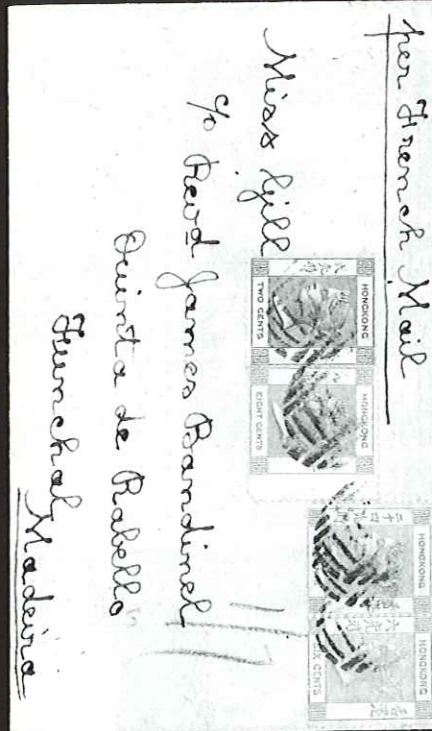 per French Mail
Miss Gill
c/o Revd James Bandinel
Quinta de Rabello
Funchal
Madeira
HONGKONG
TWO CENTS
HONGKONG
EIGHT CENTS
HONGKONG
HONGKONG
SIX CENTS